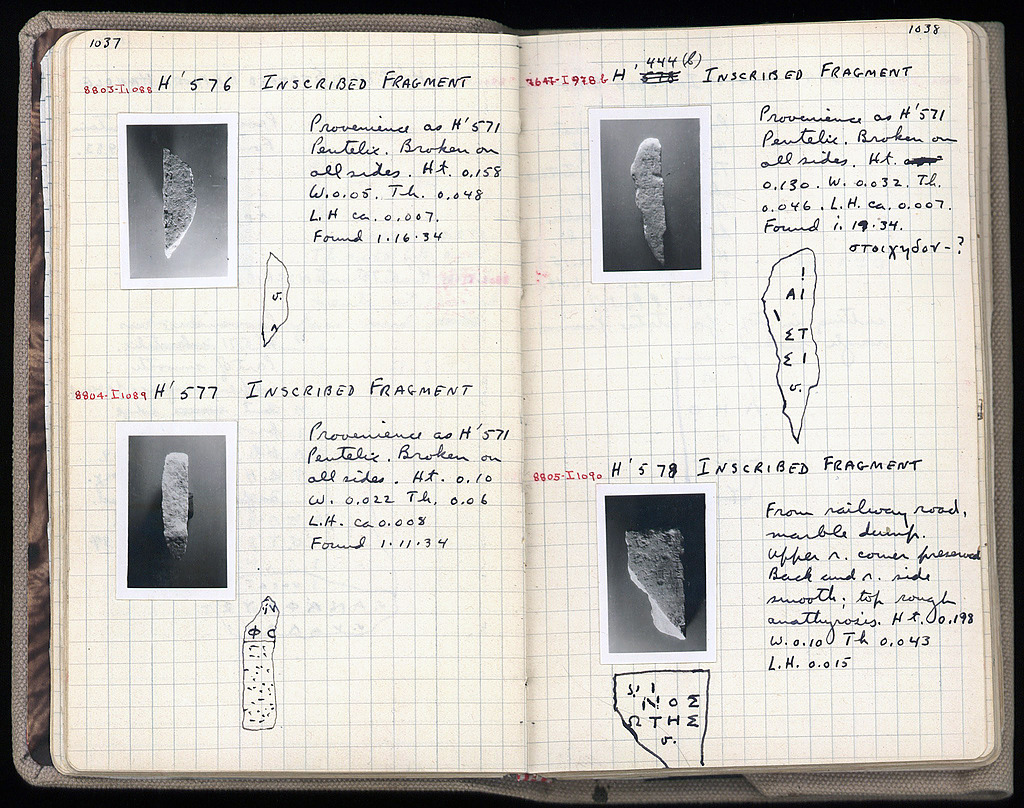 1037
8803-I1088 H'576 INSCRIBED FRAGMENT
Provenience as H'571
Pentelic. Broken on
all sides. Ht. 0.158
W. 0.05. Th. 0.048
L.H ca. 0.007.
Found 1.16.34
v.
8804-I1089 H'577 INSCRIBED FRAGMENT
Provenience as H'571
Pentelic. Broken on
all sides. Ht. 0.10
W. 0.022 Th. 0.06
L.H. ca 0.008
Found 1.11.34
Φ
1038
7647-I978 b H' 444(b) INSCRIBED FRAGMENT
Provenience as H'571
Pentelic. Broken on
all sides. Ht.
0.130. W. 0.032. Th.
0.046. L.H. ca. 0.007.
Found i. 19.34.
στοιχηδον-?
Ι
ΑΙ
ΣΤ
ΣΙ
v.
8805-I1090 H'578 INSCRIBED FRAGMENT
From railway road,
marble dump.
Upper r. corner preserved
Back and r. side
smooth; top rough
anathyrosis. Ht. 0.198
W. 0.10 Th 0.043
L.H. 0.015
ΝΟΣ
ΩΤΗΣ
v.